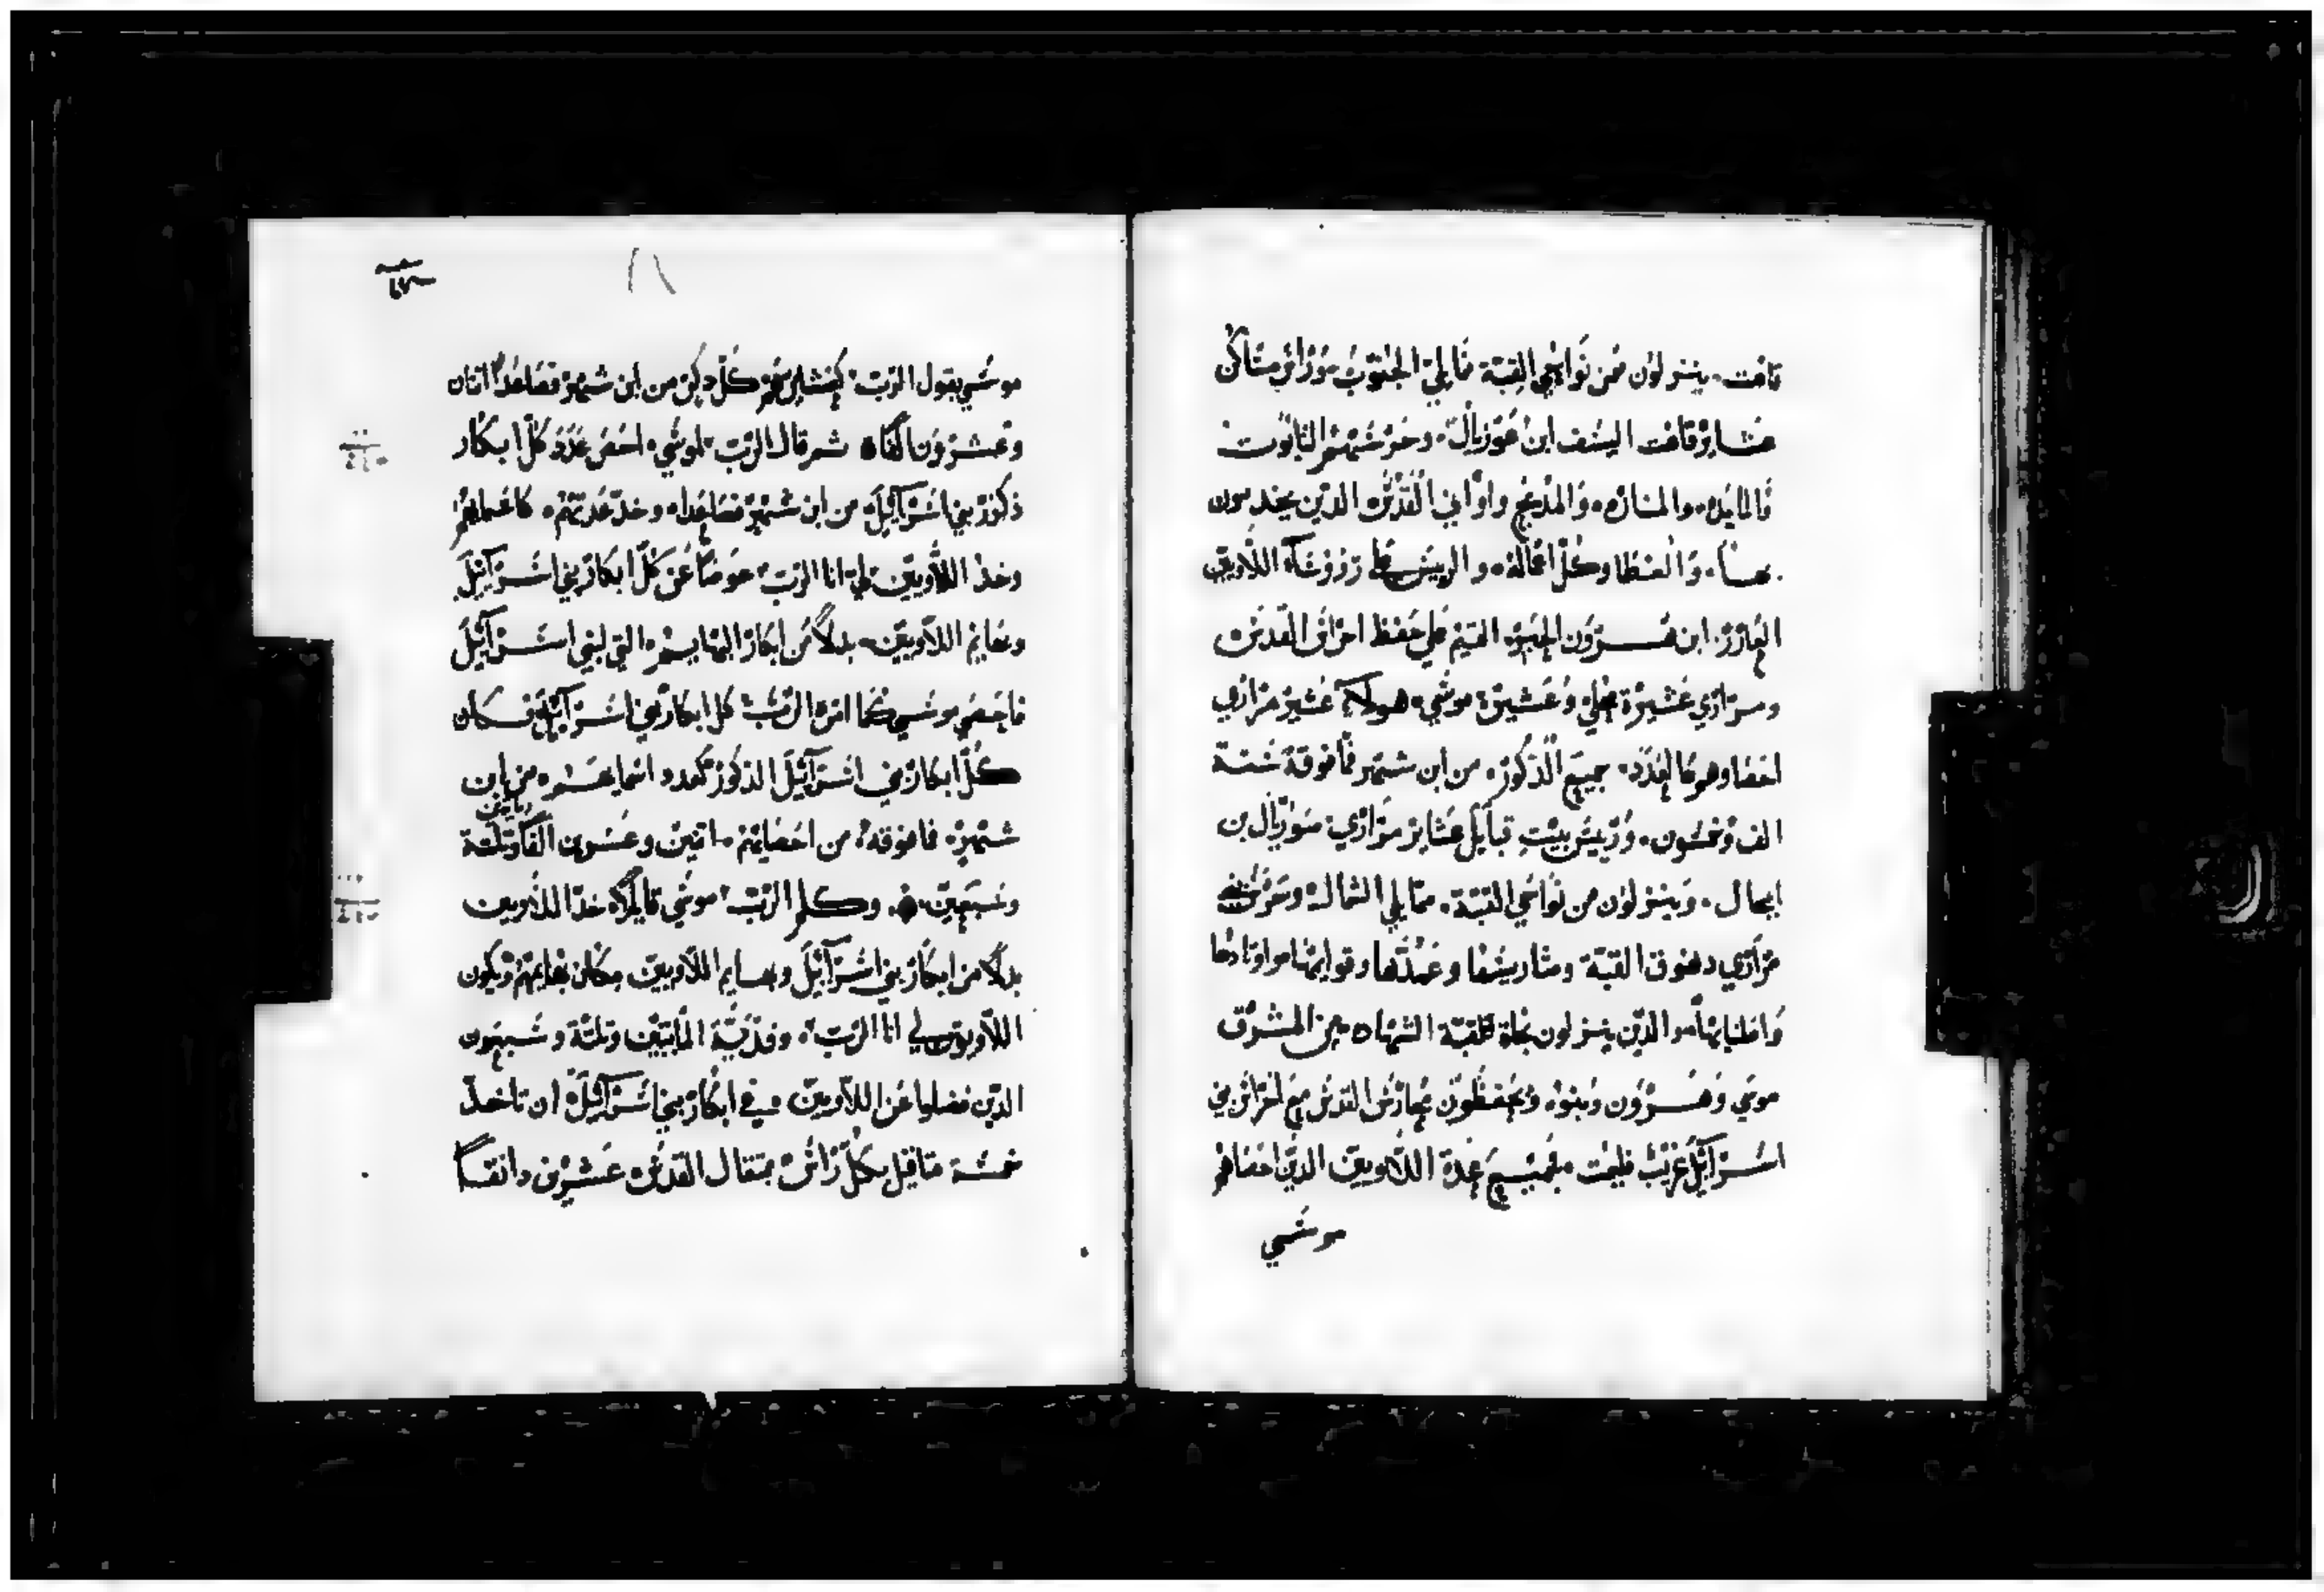 قاهت. ينزلون من نواحي القبة مما يلي الجنوب ورائس مساكن
عشاير قاهت اليسف ابن عوزيال. وحرستهم التابوت
والمايده. والمناره. والمذبح واواني القدس الذين يخدمون
بها. والغطا وكل اعماله. والريس على رووسا اللاويين
العازر ابن هرون الحبر. القيم على حفظ احراس القدس
ومراري عشيرة محلي وعشيرة موشي. هولاء عشير مراري
احصاوهم كالعدد. جميع الذكور. من ابن شهر فما فوقة ستة
الف وخمسون. وريس بيت قبايل عشاير مراري. سوريال بن
ابيحال. وينزلون من نواحي القبة. مما يلي الشمال. وحرس بني
مراري دفوف القبة ومتاريسها وعمدها وقوايمها واوتادها
واطنابها. والذين ينزلون تجاة قبة الشهاده من المشرق
موسي وهرون وبنوه. ويحفظون محارس القدس مع احراس بني
اسرائيل غريب فليمت. فجميع عدة اللاويين الذين احصاهم
موسي
موسي بقول الرب. لعشايرهم كل ذكر من ابن شهر فصاعدا اتنان
وعشرون الفا ه ثم قال الرب لموسي. احص عدد كل ابكار
ذكور بني اسرائيل من ابن شهر فصاعدا. وخذ عدتهم. كاسماهم
وخذ اللاويين لي انا الرب. عوضا عن كل ابكار بني اسرائيل
وبهايم اللاويين. بدلا من ابكار البهايم. التي لبني اسرائيل
فاحصي موسي كما امره الرب كل ابكار بني اسرائيل فكان
كل ابكار بني اسرائيل الذكور كعدد اسماهم من ابن
شهر. فما فوقه. من احصايهم. اتنين وعشرين الفا ومايتين وتلتة
وسبعين. وكلم الرب موسي قايلا. خذ اللاويين
بدلا من ابكار بني اسرائيل وبهايم اللاويين مكان بهايمهم ويكون
اللاويون لي انا الرب. وفدية المايتين وتلتة وسبعون
الذين فضلوا عن اللاويين في ابكار بني اسرائيل. ان تاخذ
خمسة متاقيل بكل راس. بمتقال القدس. عشرين دانقا